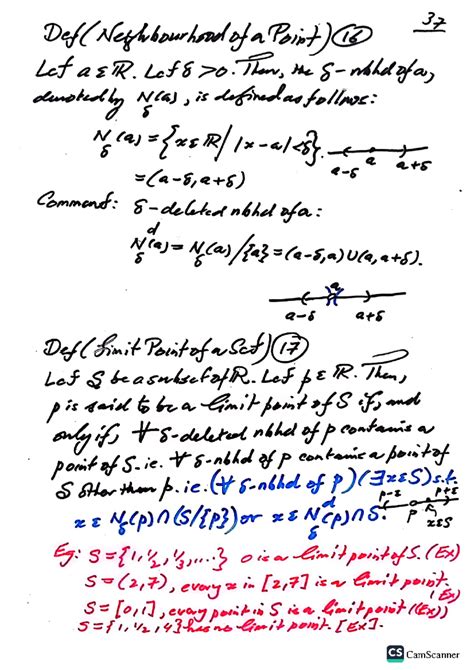 37
Def (Neighbourhood of a Point) (16)
Let a ε ℝ. Let δ > 0. Then, the δ-nbhd of a,
denoted by N_δ(a), is defined as follows:
N_δ(a) = {x ε ℝ / |x - a| < δ}.
a-δ a a+δ
= (a-δ, a+δ)
Comment: δ-deleted nbhd of a:
N_δ^d(a) = N_δ(a) / {a} = (a-δ, a) ∪ (a, a+δ).
a
a-δ a+δ
Def (Limit Point of a Set) (17)
Let S be a subset of ℝ. Let p ε ℝ. Then,
p is said to be a limit point of S if, and
only if, ∀ δ-deleted nbhd of p contains a
point of S. i.e. ∀ δ-nbhd of p contains a point of
S other than p. i.e. (∀ δ-nbhd of p) (∃ x ε S) s.t.
x ε N_δ(p) ∩ (S / {p}) or x ε N_δ^d(p) ∩ S.
p-ε p p+ε
x ε S
Eg: S = {1, 1/2, 1/3, ....} 0 is a limit point of S. (Ex)
S = (2, 7), every x in [2, 7] is a limit point. (Ex)
S = [0, 1], every point in S is a limit point ((Ex))
S = {1, 1/2, 4} has no limit point. [Ex].
CS CamScanner